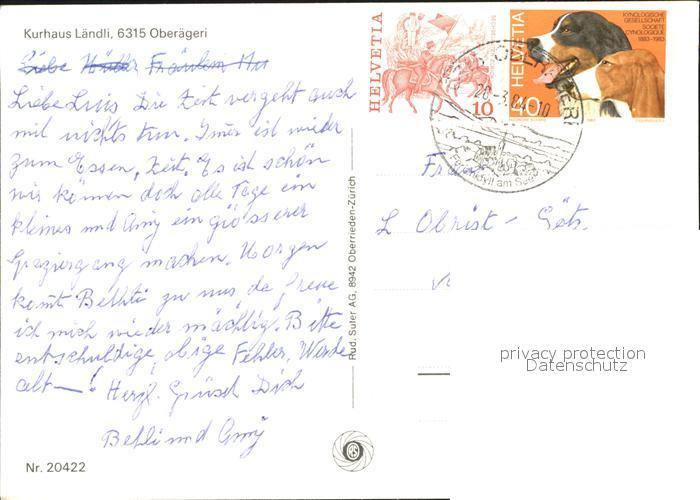 Kurhaus Ländli, 6315 Oberägeri
Liebe Fräulein
Liebe Luis Die Zeit vergeht auch
mit nichts tun. Imer ist wieder
zum Essen, Zeit. Es ist schön
wir können doch alle Tage ein
kleines und Amy ein grösserer
Spaziergang machen. Morgen
komt Bethli zu uns, da freue
ich mich wieder mächtig. Bitte
entschuldige, obige Fehler, Werde
alt —! Herzl. Grüsst Dich
Bethli und Amy
Nr. 20422
Rud. Suter AG, 8942 Oberrieden-Zürich
HELVETIA
10
HELVETIA
40
KYNOLOGISCHE
GESELLSCHAFT
SOCIETE
CYNOLOGIQUE
1883-1983
OBERÄGERI
28-3.84-10
Idyll am See
Frau
L Obrist - Göts
privacy protection
Datenschutz